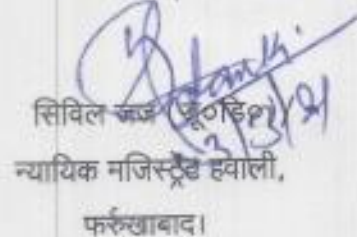 सिविल जज (जू०डि०)/
न्यायिक मजिस्ट्रेट हवाली,
फर्रुखाबाद।